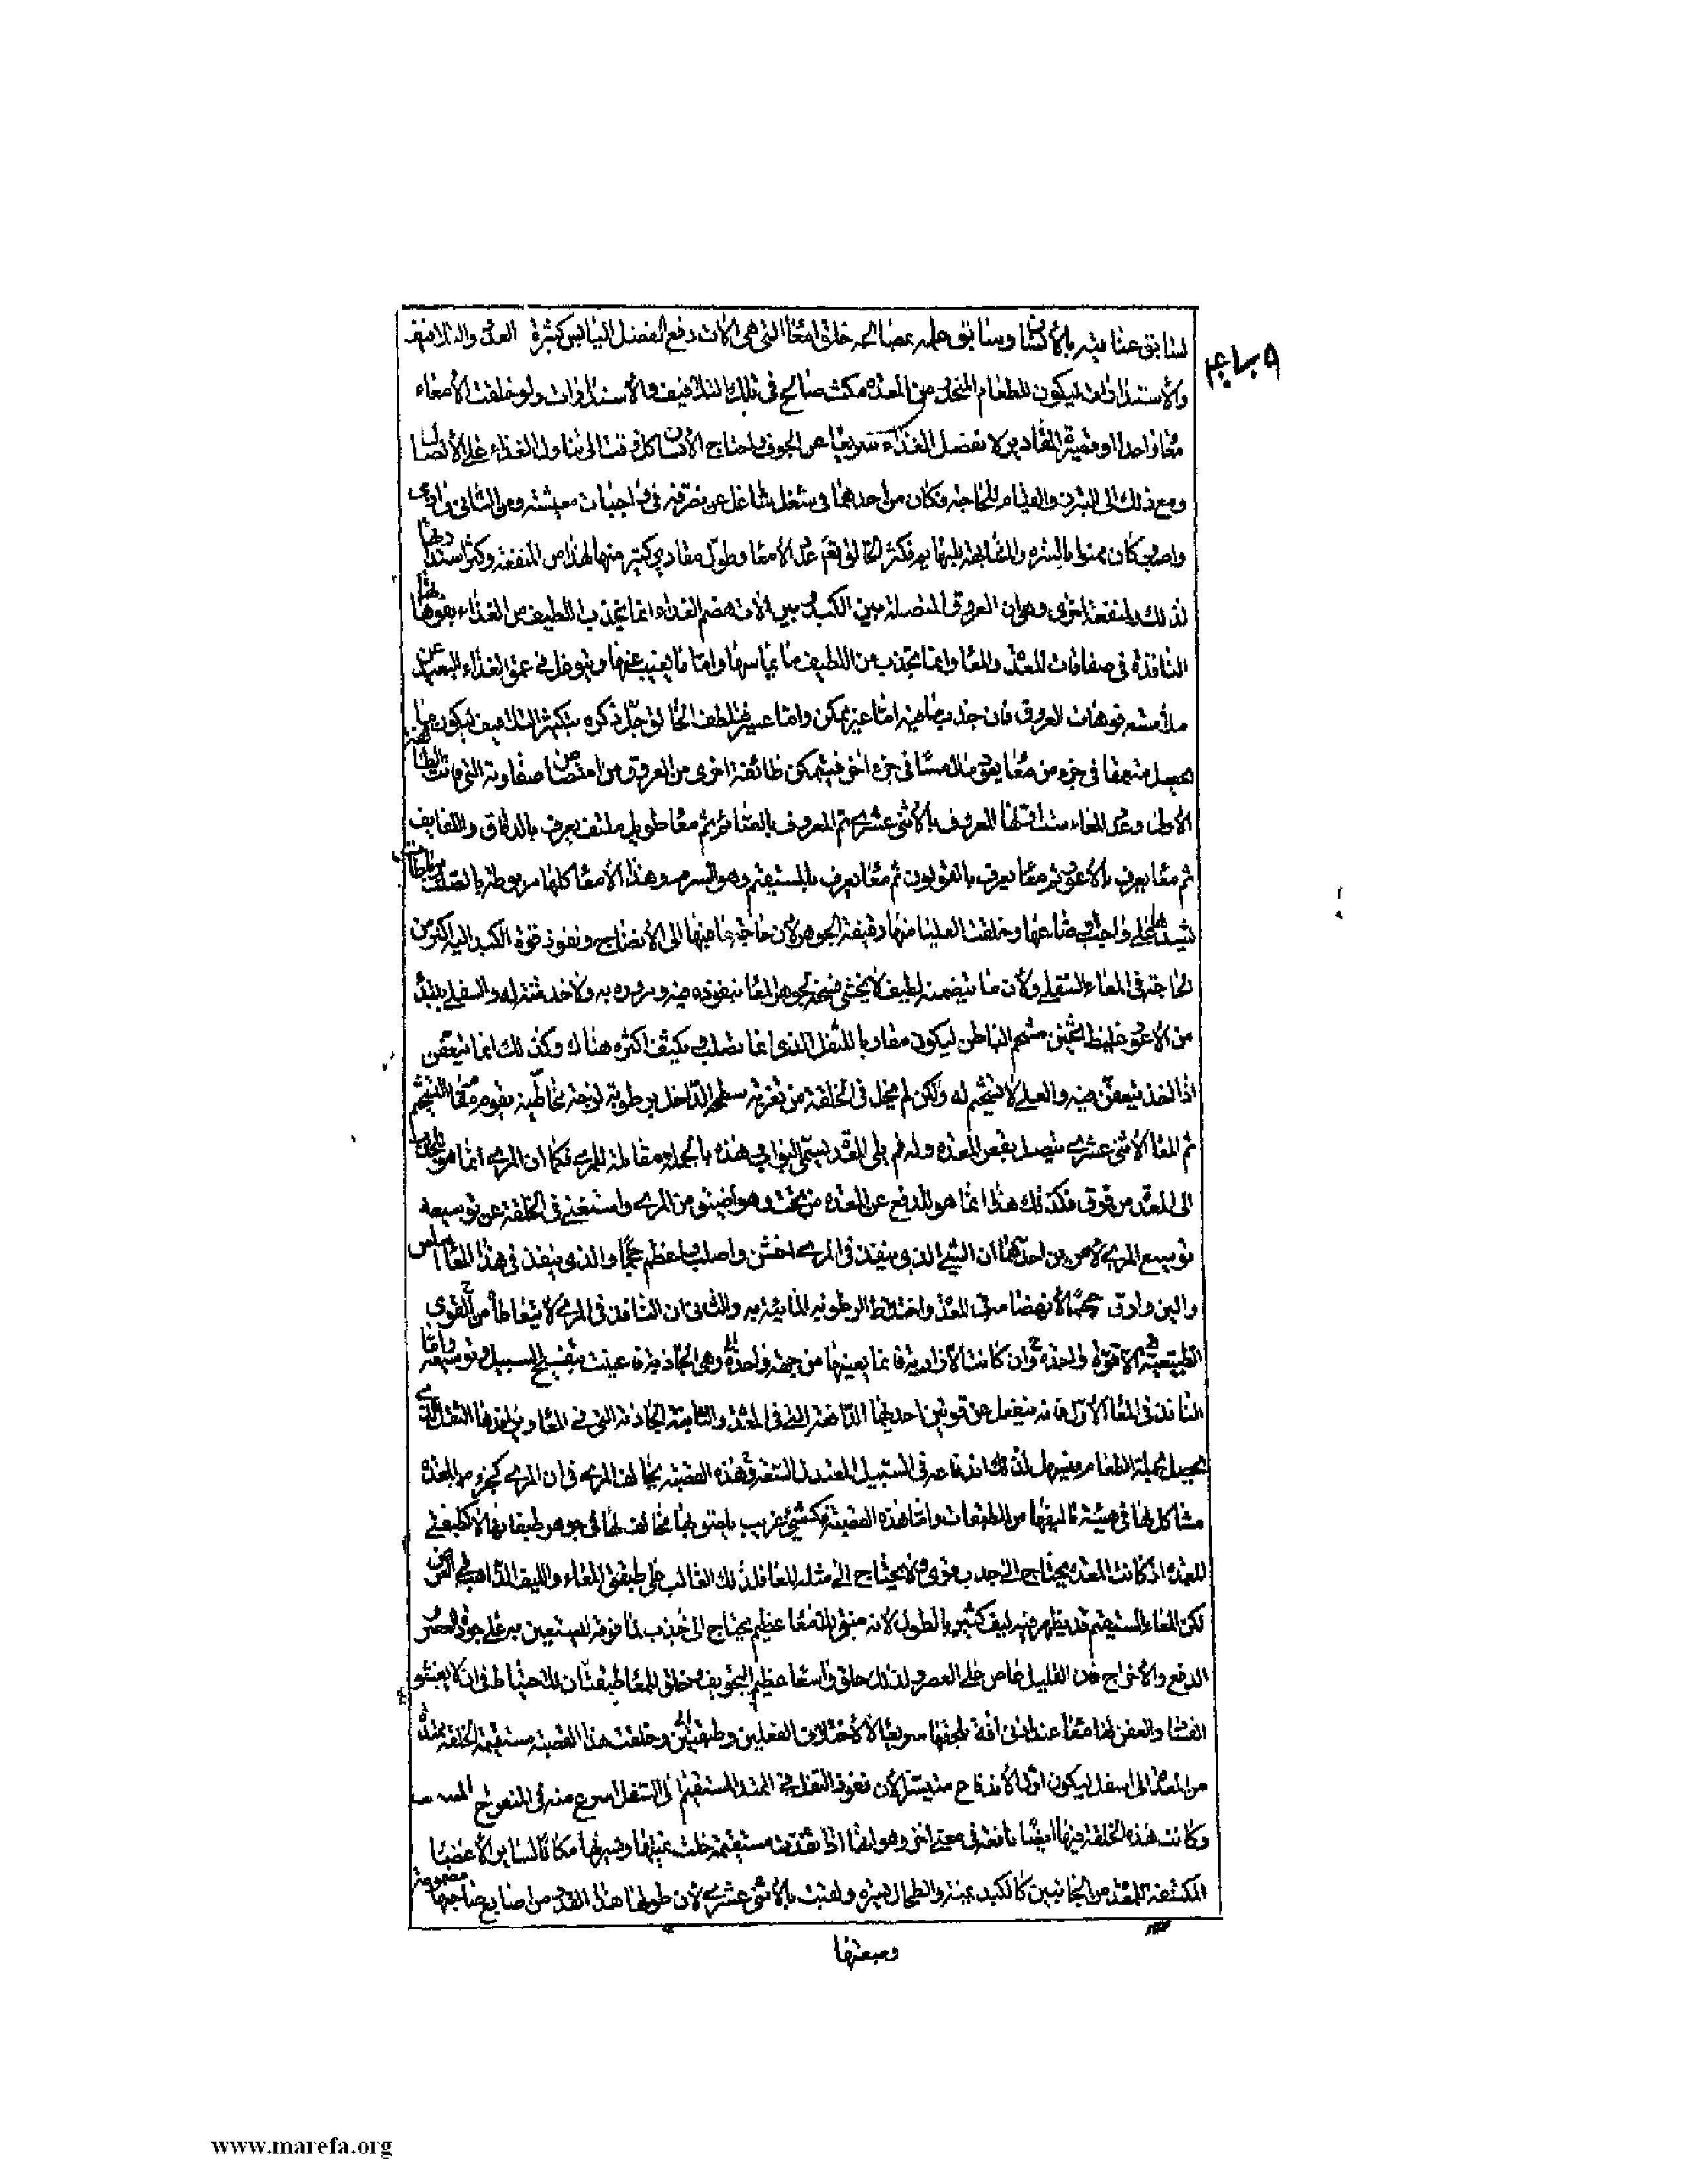 لسابق عنايته بالانسان وسابق علمه بمصالحه خلق امعاءه التى هى الات دفع الفضل اليابس كثيرة العدد والتلافيف
والاستدارات ليكون للطعام المنحدر من المعدة مكث صالح فى تلك التلافيف والاستدارات ولو خلقت الامعاء
معا واحدا او قصيرة المقادير لانفصل الغذاء سريعا عن الجوف واحتاج الانسان كل وقت الى تناول الغذاء على الاتصال
ومع ذلك الى التبرز والقيام للحاجة وكان من احدهما فى شغل شاغل عن تصرفه فى واجبات معيشته ومن الثانى فى اذى
واصب كان ممنوا بالشره والمشابهة للبهايم فكثر الخالق تعم عدد الامعا وطول مقادير كثير منها لهذا من المنفعة وكثر استدارتها
لذلك ولمنفعة اخرى وهى ان العروق المتصلة بين الكبد وبين الات هضم الغذاء انما تجذب اللطيف من الغذاء بفوهاتها
النافذة فى صفاقات المعدة والمعا وانما تجذب من اللطيف ما يماسها واما ما يغيب عنها ويتوغل فى عمق الغذاء البعيد عن
ملامسة فوهات العروق فان جذب ما فيه اما غير ممكن واما عسير فتلطف الخالق جل ذكره بتكثير التلافيف ليكون ما
يحصل متعمقا فى جزء من معا يعود ملامسا فى جزء اخر فيتمكن طائفة اخرى من العروق من امتصاص صفاوته التى فاتت الطائفة
الاولى وعدد المعاء ستة اولها المعروف بالاثنى عشرى ثم المعروف بالصائم ثم معا طويل ملتف يعرف بالدقاق واللفايف
ثم معا يعرف بالاعور ثم معا يعرف بالقولون ثم معا يعرف بالمستقيم وهو السرم وهذه الامعا كلها مربوطة بالصلب برباطات
تشدها على واجب اوضاعها وخلقت العليا منها رقيقة الجوهر لان حاجة ما فيها الى الانضاج ونفوذ قوة الكبد اليه اكثر من
الحاجة فى المعاء السفلى ولان ما يتضمنه لطيف لا يخشى فسخه لجوهر المعا بنفوذه فيه ومروره به ولا خدشه له والسفلى يبتدئ
من الاعور غليظ ثخين مشحم الباطن ليكون مقاوما للثفل الذى انما يصلب ويكثف اكثره هناك وكذلك انما يتعفن
اذا اخذ يتعفن فيه والعليا لا شحم له ولكن لم يخل فى الخلقة من تغرية سطحه الداخل برطوبة لزجة مخاطية تقوم مقام التشحيم
ثم المعا الاثنى عشرى متصل بقعر المعدة وله فم يلى المعدة يسمى البواب وهذه بالجملة مقابلة للمرى فكما ان المرى انما هو للجذب
الى المعدة من فوق فكذلك هذا انما هو للدفع عن المعدة من تحت وهو اضيق من المرى واستغنى فى الخلقة عن توسيعه
توسيع المرى لامرين احدهما ان الشى الذى ينفذ فى المرى اخشن واصلب واعظم حجما والذى ينفذ فى هذا المعا املس
والين وادق حجما لانهضامه فى المعدة واختلاط الرطوبة المائية به والثانى ان النافذ فى المرى لا يتعاطاه من القوى
الطبيعية الا قوة واحدة وان كانت الارادية فانما تعينها من جهة واحدة وهى الجاذبة فاعينت بتفسيح السبيل وتوسيعه واما
النافذ فى المعا الاول فانه ينفعل عن قوتين احديهما الدافعة التى فى المعدة والثانية الجاذبة التى فى المعا ويرافدها الثقل الذى
يحصل لجملة الطعام فيسهل لذلك اندفاعه فى السبيل المعتدل السعة وهذه القصبة تخالف المرى فى ان المرى كجزء من المعدة
مشاكل لها فى هيئة تاليفها من الطبقات واما هذه القصبة فكشئ غريب ملصق بها مخالف لها فى جوهر طبقاتها الا
للمعدة اذ كانت المعدة تحتاج الى جذب قوى ولا يحتاج الى مثله المعا فلذلك الغالب على طبقتى المعاء والليف الذاهب فى العرض
لكن المعاء المستقيم قد يظهر فيه ليف كثير بالطول لانه منق للامعا عظيم يحتاج الى جذب لما فوقه ليستعين به على جودة العصر
الدفع والاخراج فان القليل عاص على العصر ولذلك خلق واسعا عظيم التجويف وخلق للمعا طبقتان للاحتياط فى ان لا يفشو
الفساد والعفن لها معا عند ادنى افة تلحقها سريعا لاختلاف الفعلين وطبقتين وخلقت هذه القصبة مستقيمة الخلقة ممتدة
من المعدة الى اسفل ليكون اول الاندفاع متيسرا لان نفوذ الثقل فى الممتد المستقيم الى اسفل اسرع منه فى المنعرج
وكانت هذه الخلقة فيها ايضا نافعة فى معنى اخر وهو انها اذا نفذت مستقيمة خلت يمينها ويسارها مكانا لساير الاعضا
المكتنفة للمعدة من الجانبين كالكبد يمنة والطحال يسرة ولقبت بالاثنى عشرى لان طولها هذا القدر من اصابع صاحبها مضمومة
وسعتها
www.marefa.org